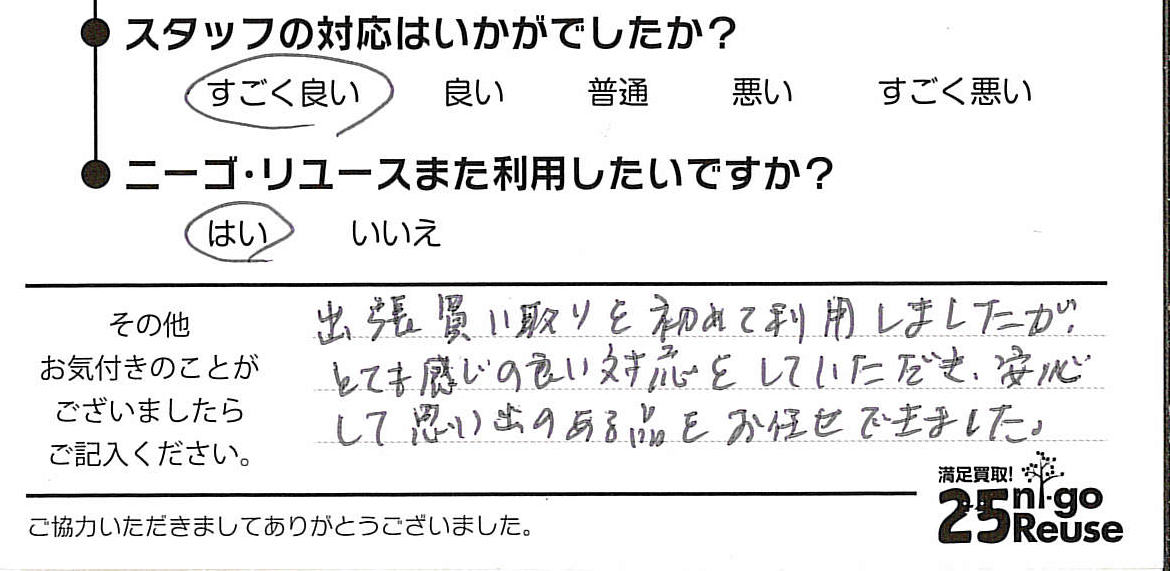 スタッフの対応はいかがでしたか？
すごく良い 良い 普通 悪い すごく悪い
ニーゴ・リユースまた利用したいですか？
はい いいえ
その他
お気付きのことが
ございましたら
ご記入ください。
出張買い取りを初めて利用しましたが、
とても感じの良い対応をしていただき、安心
して思い出のある品をお任せできました。
満足買取!
25 ni-go
Reuse
ご協力いただきましてありがとうございました。